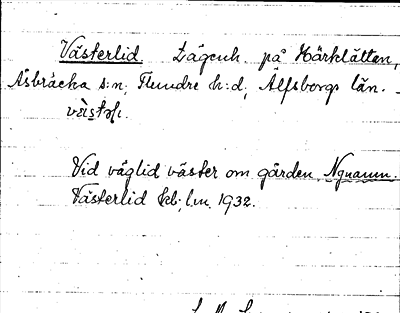 Västerlid. Lägenh. på Härklätten,
Åsbräcka s:n, Flundre h:d, Älfsborgs län.
Vid väglid väster om gården. Ngnamn.
Västerlid kb; l.m. 1932.